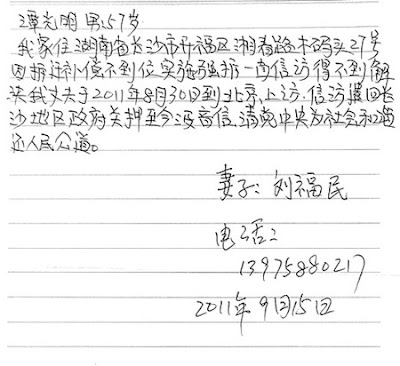 谭光明 男 57岁
我家住湖南省长沙市开福区湘春路木码头27号
因拆迁补偿不到位实施强拆一直信访得不到解
决我丈夫于2011年8月30日到北京上访.信访接回长
沙地区政府关押至今没音信.请党中央为社会和谐
还人民公道。
妻子:刘福民
电话:
13975880217
2011年9月15日